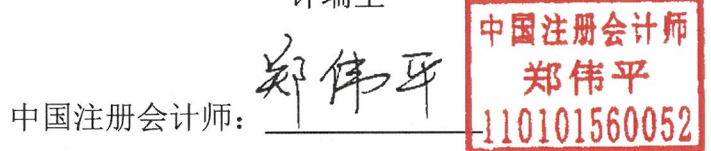 中国注册会计师：郑伟平
中国注册会计师
郑伟平
110101560052